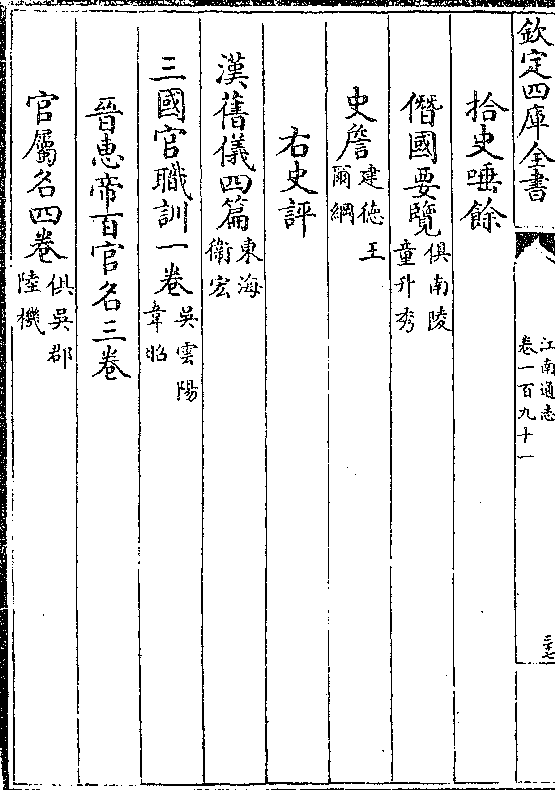 欽定四庫全書
江南通志
卷一百九十一
三十七
拾史唾餘
僭國要覽俱南陵
童升秀
史詹建德王
爾綱
右史評
漢舊儀四篇東海
衛宏
三國官職訓一卷吳雲陽
韋昭
晉惠帝百官名三卷
官屬名四卷俱吳郡
陸機